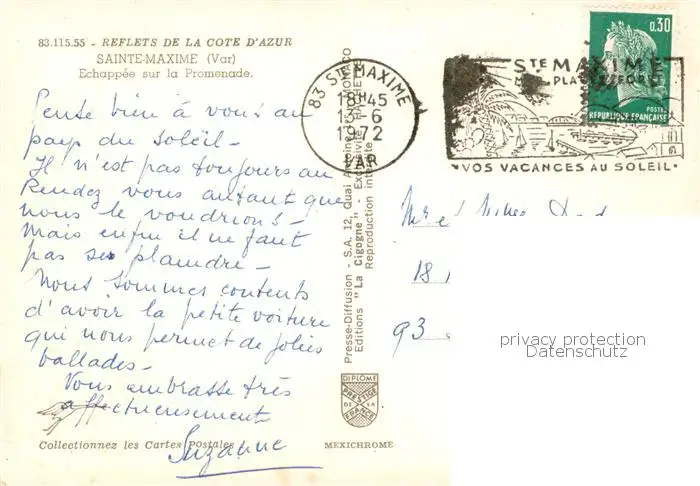 83.115.55 - REFLETS DE LA COTE D'AZUR
SAINTE-MAXIME (Var)
Echappée sur la Promenade.
Pense bien à vous au
pays du soleil -
Il n'est pas toujours au
Rendez vous autant que
nous le voudrions! -
Mais enfin il ne faut
pas se plaindre -
Nous sommes contents
d'avoir la petite voiture
qui nous permet de jolies
ballades -
Vous embrasse très
affectueusement
Suzanne
Collectionnez les Cartes Postales
MEXICHROME
Presse-Diffusion - S.A. 12, Quai
Editions "La Cigogne" - Exclusivité
Reproduction interdite
DIPLOME
PRESTIGE
DE LA
FRANCE
83 STE MAXIME
18H45
13-6
1972
VAR
STE MAXIME
VOS VACANCES AU SOLEIL
0,30
POSTES
REPUBLIQUE FRANÇAISE
Mr et
18
93
privacy protection
Datenschutz